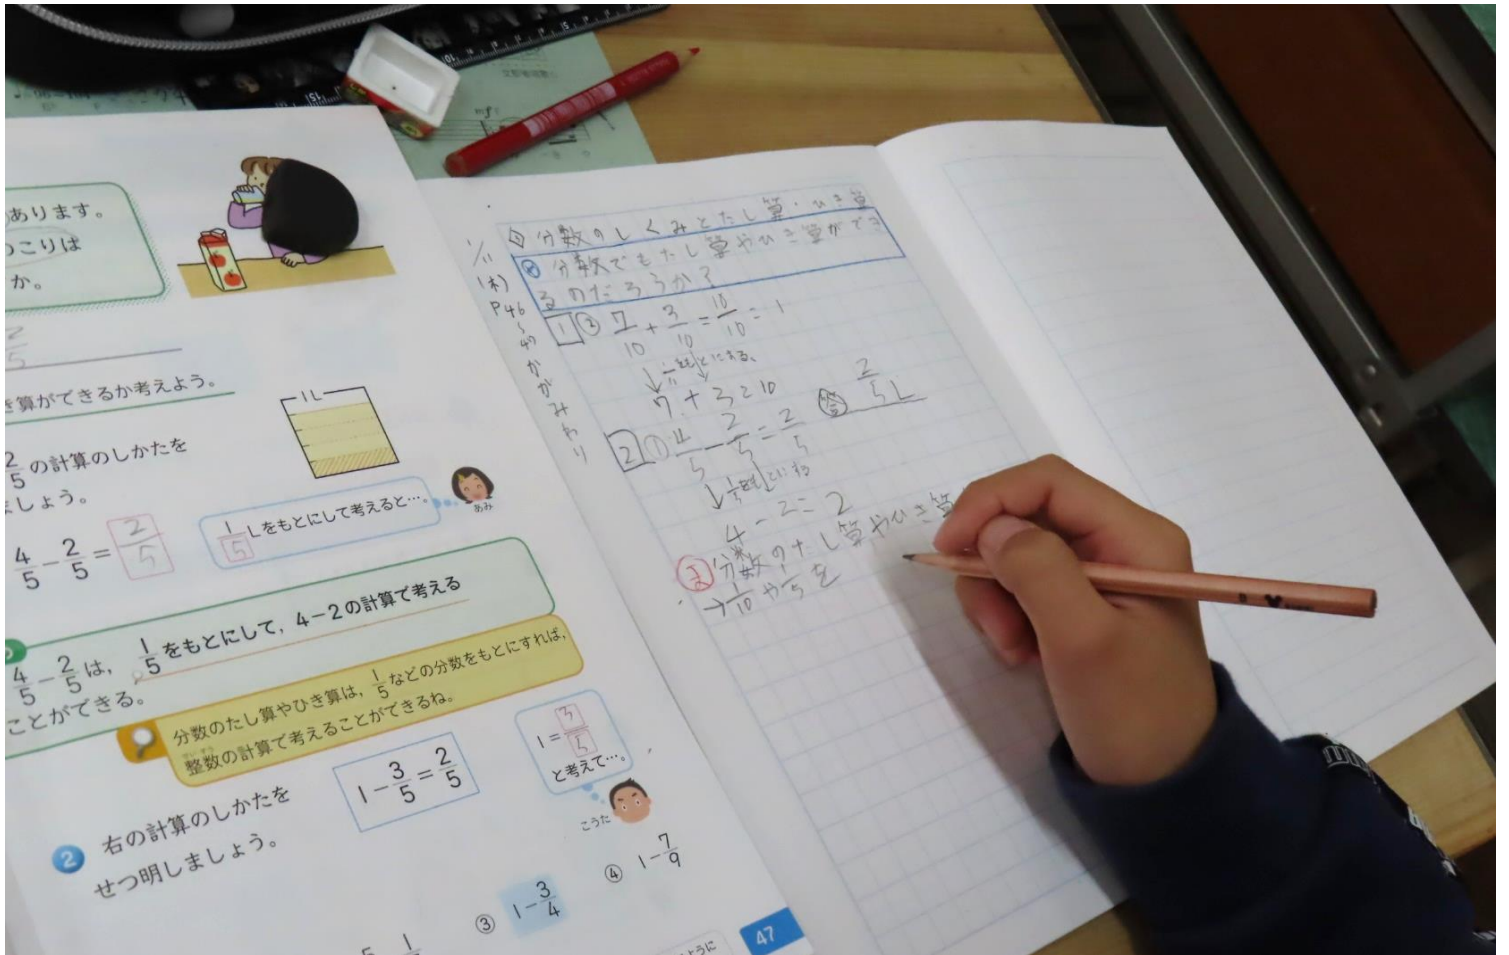 あります。
のこりは
か。
2
5
き算ができるか考えよう。
1L
2/5 の計算のしかたを
ましょう。
4/5 − 2/5 = 2/5
1/5 Lをもとにして考えると…。
あみ
4/5 − 2/5 は， 1/5 をもとにして，4−2の計算で考える
ことができる。
分数のたし算やひき算は，1/5 などの分数をもとにすれば，
整数の計算で考えることができるね。
せいすう
1 = 3/5
と考えて…。
こうた
2 右の計算のしかたを
せつ明しましょう。
1 − 3/5 = 2/5
③ 1 − 3/4
④ 1 − 7/9
ように
47
1/11
(木)
P46
〜
47
かがみわり
分数のしくみとたし算・ひき算
分数でもたし算やひき算ができ
るのだろうか？
1 ③ 7/10 + 3/10 = 10/10 = 1
もとにする。
7 + 3 = 10
2 ① 4/5 − 2/5 = 2/5
答 2/5 L
1/5 をもとにする
4 − 2 = 2
ま 分数のたし算やひき算
→ 1/10 や 1/5 を